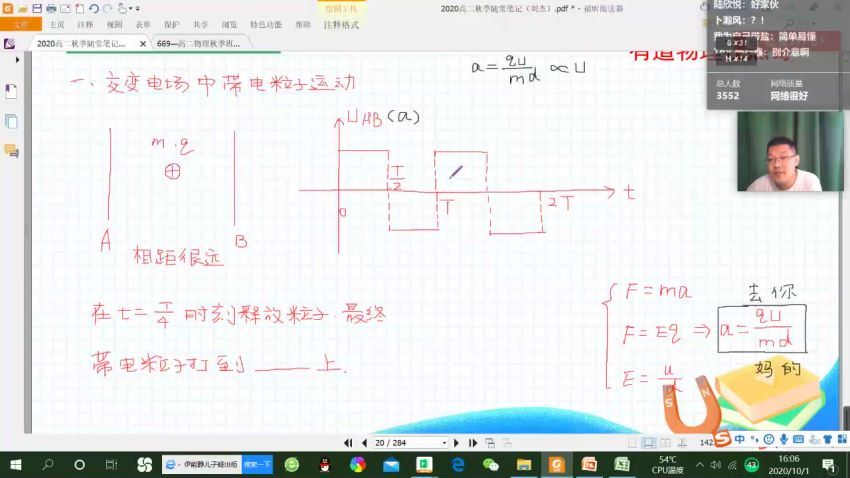 绘图工具
2020高二秋季随堂笔记（刘杰）.pdf * - 福昕阅读器
文件
主页
注释
视图
表单
保护
共享
浏览
特色功能
帮助
注释格式
2020高二秋季随堂笔记...
669—高二物理秋季班...
陆欣悦：好家伙
卜瀚风：？！
我为自己带盐：简单易懂
别介意啊
G x31
H x14
总人数
网络质量
3552
网络很好
一、交变电场中带电粒子运动
a = qU/md ∝ U
m.q
⊕
A
B
相距很远
U AB (a)
T/2
0
T
2T
t
在 t = T/4 时刻释放粒子.最终
带电粒子打到 ____ 上.
F = ma
F = Eq ⇒ a = qU/md
E = u/d
去你
妈的
S
N
20 / 284
中
伊能静儿子细出柜
搜索一下
54℃
CPU温度
43
16:06
2020/10/1